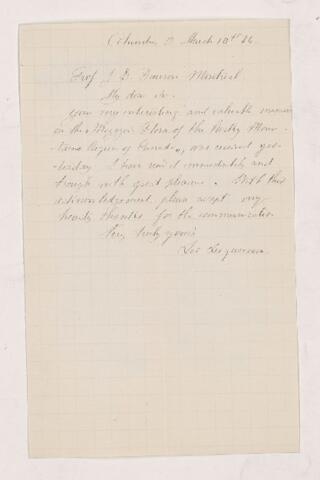 Columbus O March 18th 86
Prof J. D. Dawson Montreal
My dear Sir.
Your very interesting and valuable memoir
on the Mesozoic Flora of the Rocky Moun-
tains Region of Canada, was received yes-
terday. I have read it immediately and
trough with great pleasure. With this
acknowledgement please accept my
hearty thanks for the communication
Very truly yours
Leo Lesquereux